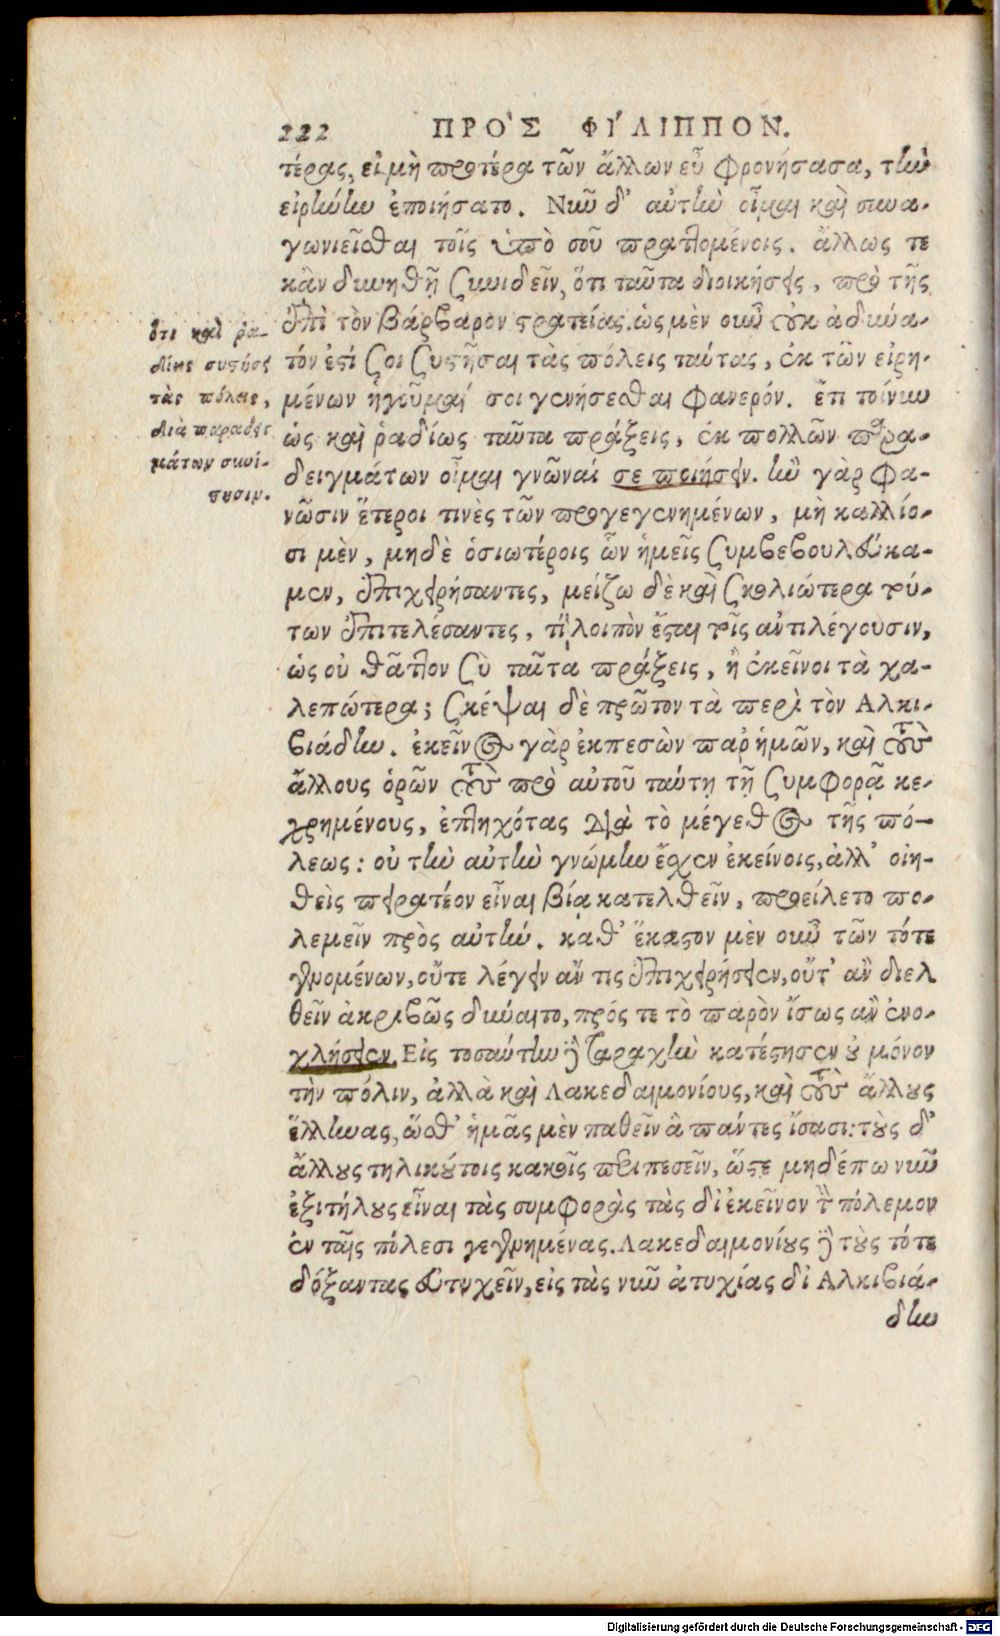 222 ΠΡΟ'Σ ΦΙ'ΛΙΠΠΟΝ.
τέρας, εἰ μὴ προτέρα τῶν ἄλλων εὖ φρονήσασα, τὴν
εἰρήνην ἐποιήσατο. Νῦν δ' αὐτὴν οἶμαι καὶ συνα-
γωνιεῖσθαι τοῖς ὑπὸ σοῦ πραττομένοις. ἄλλως τε
κἂν δυνηθῇ συνιδεῖν, ὅτι ταῦτα διοικήσεις, πρὸ τῆς
ἐπὶ τὸν βάρβαρον στρατείας. ὡς μὲν οὖν οὐκ ἀδύνα-
τόν ἐστί σοι συστῆσαι τὰς πόλεις ταύτας, ἐκ τῶν εἰρη-
μένων ἡγοῦμαί σοι γενήσεσθαι φανερόν. ἔτι τοίνυν
ὡς καὶ ῥαδίως ταῦτα πράξεις, ἐκ πολλῶν παρα-
δειγμάτων οἶμαι γνῶναί σε ποιήσειν. ἢν γὰρ φα-
νῶσιν ἕτεροι τινὲς τῶν προγεγενημένων, μὴ καλλίο-
σι μὲν, μηδὲ ὁσιωτέροις ὧν ἡμεῖς συμβεβουλεύκα-
μεν, ἐπιχειρήσαντες, μείζω δὲ καὶ σκολιώτερα τού-
των ἐπιτελέσαντες, τί λοιπὸν ἔσται τοῖς ἀντιλέγουσιν,
ὡς οὐ θᾶττον σὺ ταῦτα πράξεις, ἢ ἐκεῖνοι τὰ χα-
λεπώτερα; σκέψαι δὲ πρῶτον τὰ περὶ τὸν Αλκι-
βιάδην. ἐκεῖνος γὰρ ἐκπεσὼν παρ' ἡμῶν, καὶ τοὺς
ἄλλους ὁρῶν τοὺς πρὸ αὐτοῦ ταύτῃ τῇ συμφορᾷ κε-
χρημένους, ἐπτηχότας διὰ τὸ μέγεθος τῆς πό-
λεως: οὐ τὴν αὐτὴν γνώμην ἔσχεν ἐκείνοις, ἀλλ' οἰη-
θεὶς πειρατέον εἶναι βίᾳ κατελθεῖν, προείλετο πο-
λεμεῖν πρὸς αὐτήν. καθ' ἕκαστον μὲν οὖν τῶν τότε
γενομένων, οὔτε λέγειν ἄν τις ἐπιχειρήσειεν, οὔτ' ἂν διελ
θεῖν ἀκριβῶς δύναιτο, πρός τε τὸ παρὸν ἴσως ἂν ἐνο-
χλήσειεν. Εἰς τοσαύτην δὲ ταραχὴν κατέστησεν οὐ μόνον
τὴν πόλιν, ἀλλὰ καὶ Λακεδαιμονίους, καὶ τοὺς ἄλλους
ἕλληνας, ὥσθ' ἡμᾶς μὲν παθεῖν ἃ πάντες ἴσασι: τοὺς δ'
ἄλλους τηλικούτοις κακοῖς περιπεσεῖν, ὥστε μηδέπω νῦν
ἐξιτήλους εἶναι τὰς συμφορὰς τὰς δι' ἐκεῖνον τὸν πόλεμον
ἐν ταῖς πόλεσι γεγενημένας. Λακεδαιμονίους δὲ τοὺς τότε
δόξαντας εὐτυχεῖν, εἰς τὰς νῦν ἀτυχίας δι' Αλκιβιά-
δην
ὅτι καὶ ῥα-
δίως συστήσει
τὰς πόλεις,
διὰ παραδειγ
μάτων συνί-
στησιν.
Digitalisierung gefördert durch die Deutsche Forschungsgemeinschaft - DFG